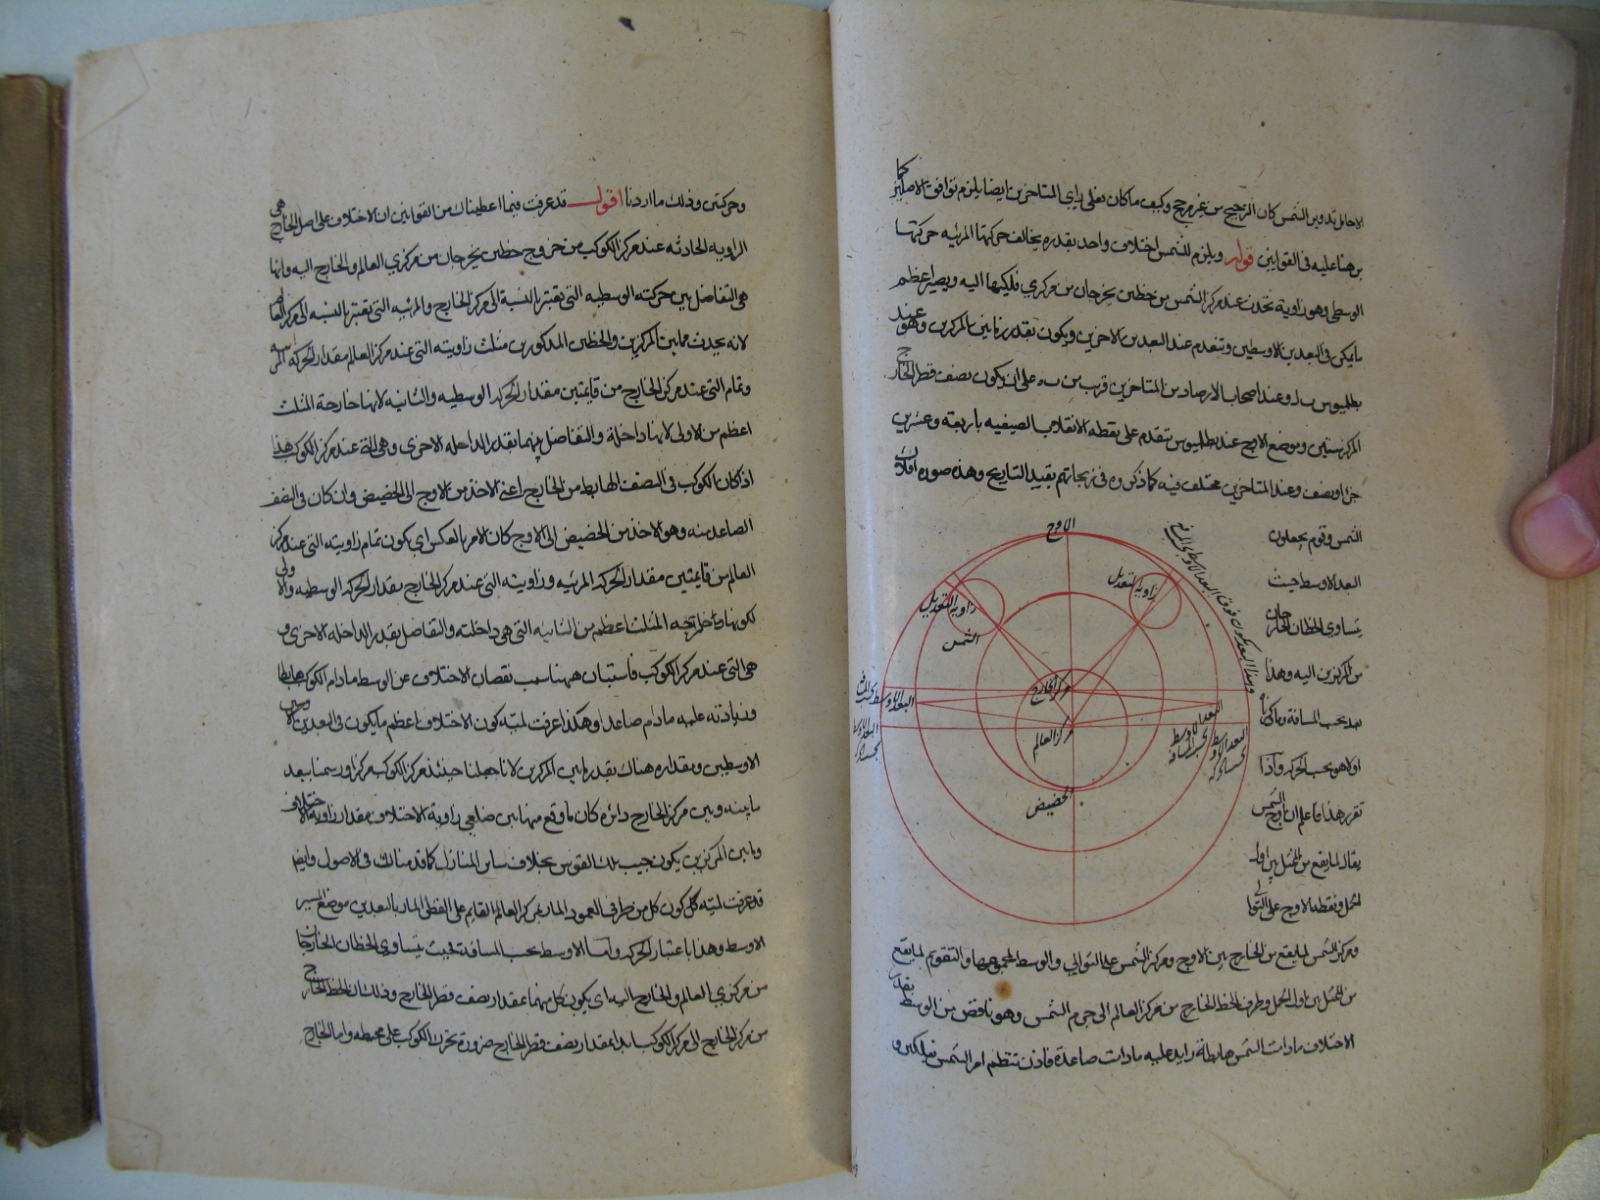 الاحامل تدوير الشمس كان الترجيح من غير مرجح وكيف ما كان فعلى راى المتاخرين ايضا يلزم توافق الاصلين كما
برهنا عليه فى القوانين قوله ويلزم للشمس اختلاف واحد بقدره يخالف حركتها المرئيه حركتها
الوسطى وهو زاوية تحدث عند مركز الشمس من خطين يخرجان من مركزي فلكيها اليه ويصير اعظم
ما يمكن فى البعدين الاوسطين وتنعدم عند البعدين الاخرين ويكون بقدر ما بين المركزين وهو عند
بطلميوس وعند اصحاب الارصاد من المتاخرين قريب من على ان يكون نصف قطر الخارج
ستين وموضع الاوج عند بطلميوس متقدم على نقطه الانقلاب الصيفيه باربعة وعشرين
جزءا ونصف وعند المتاخرين مختلف فيه كما ذكروه فى زيجاتهم بقيد التاريخ وهذه صوره افلاك
الشمس وقوم يجعلون
البعد الاوسط حيث
يتساوى الخطان الخارجان
من المركزين اليه وهذا
بعد بحسب المسافة وما ذكرناه
اولا هو بحسب الحركه واذا
تقرر هذا فاعلم ان اوج الشمس
يقال لما يقع من الممثل بين اول
الحمل ونقطه الاوج على التوالى
الاوج
زاويه التعديل
زاويه التعديل
الشمس
مركز الخارج
مركز العالم
الحضيض
البعد الاوسط بحسب المسافة
ومركز الشمس لما يقع من الخارج بين الاوج ومركز الشمس على التوالي والوسط لمجموعهما والتقويم لما يقع
من الممثل بين اول الحمل وطرف الخط الخارج من مركز العالم الى جرم الشمس وهو ناقص من الوسط بقدر
الاختلاف مادامت الشمس هابطة زايد عليه مادامت صاعدة فاذن تنتظم امر الشمس بفلكين و
وحركتين وذلك ما اردنا اقول قد عرفت فيما اعطيناك من القوانين ان الاختلاف على اصل الخارج هى
الزاويه الحادثه عند مركز الكوكب من خروج خطين يخرجان من مركزي العالم والخارج اليه وانها
هى التفاضل بين حركته الوسطيه التى تعتبر بالنسبة الى مركز الخارج والمرئيه التى تعتبر بالنسبه الى مركز العالم
لانه يحدث مما بين المركزين والخطين المذكورين مثلث زاويته التى عند مركز العالم مقدار الحركة المرئيه
وتمام التى عند مركز الخارج من قايمتين مقدار الحركه الوسطيه والثانيه لانها خارجة المثلث
اعظم من الاولى لانها داخلة والتفاضل بينهما بقدر الداخله الاخرى وهى التى عند مركز الكوكب هذا
اذا كان الكوكب فى النصف الهابط من الخارج اعنى الاخذ من الاوج الى الحضيض وان كان فى النصف
الصاعد منه وهو الاخذ من الحضيض الى الاوج كان الامر بالعكس اي يكون تمام زاويته التى عند مركز
العالم من قايمتين مقدار الحركه المرئيه وزاويته التى عند مركز الخارج مقدار الحركه الوسطيه والاولى
لكونها خارجه المثلث اعظم من الثانيه التى هى داخلته والتفاضل بقدر الداخله الاخرى و
هى التى عند مركز الكوكب فاستبان ههنا سبب نقصان الاختلاف عن الوسط مادام الكوكب هابطا
وزيادته عليه مادام صاعدا وهكذا عرفت لميّه كون الاختلاف اعظم ما يكون فى البعدين
الاوسطين ومقداره هناك بقدر ما بين المركزين لانا جعلنا حينئذ مركز الكوكب مركزا ورسمنا ببعد
ما بينه وبين مركز الخارج دائره كان ما وقع منها بين ضلعي زاوية الاختلاف مقدار زاوية الاختلاف
وما بين المركزين يكون جيب تلك القوس بخلاف ساير المنازل كما قدمناك فى الاصول وايضا
قد عرفت لميّه كون كل من طرفى العمود المار بمركز العالم القايم على القطر المار بالبعدين موضع المسير
الاوسط وهذا باعتبار الحركه واما الاوسط بحسب المسافة فحيث يتساوي الخطان الخارجان
من مركزي العالم والخارج اليه اى يكون كل منهما بمقدار نصف قطر الخارج وذلك ان الخط الخارج
من مركز الخارج الى مركز الكوكب ابدا بمقدار نصف قطر الخارج ضرورة تحرك الكوكب على محيطه واما الخارج